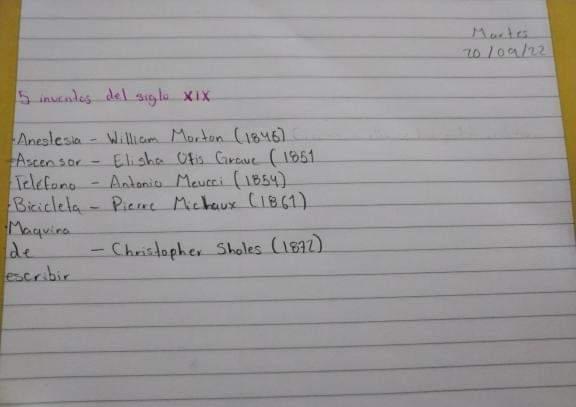 Martes
20/09/22
5 inventos del siglo XIX
·Anestesia - William Morton (1846)
·Ascensor - Elisha Otis Grave (1851
·Teléfono - Antonio Meucci (1854)
·Bicicleta - Pierre Michaux (1861)
·Maquina
de - Christopher Sholes (1872)
escribir